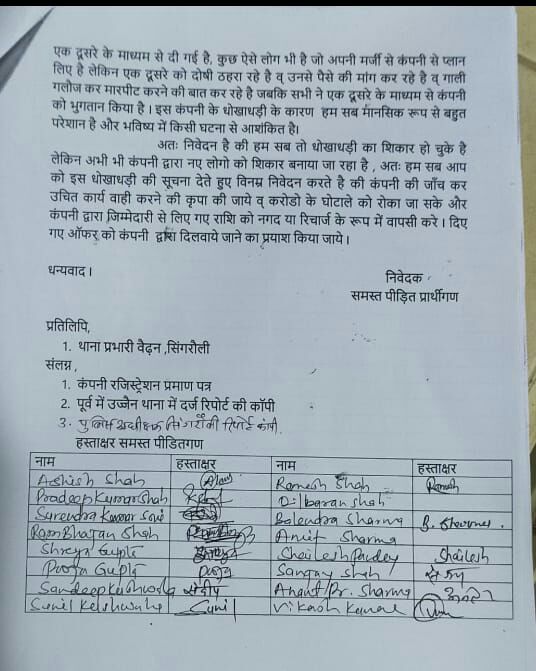 एक दूसरे के माध्यम से दी गई है, कुछ ऐसे लोग भी है जो अपनी मर्जी से कंपनी से प्लान
लिए है लेकिन एक दूसरे को दोषी ठहरा रहे है व् उनसे पैसे की मांग कर रहे है व् गाली
गलौज कर मारपीट करने की बात कर रहे है जबकि सभी ने एक दूसरे के माध्यम से कंपनी
को भुगतान किया है। इस कंपनी के धोखाधड़ी के कारण हम सब मानसिक रूप से बहुत
परेशान है और भविष्य में किसी घटना से आशंकित है।
अतः निवेदन है की हम सब तो धोखाधड़ी का शिकार हो चुके है
लेकिन अभी भी कंपनी द्वारा नए लोगो को शिकार बनाया जा रहा है , अतः हम सब आप
को इस धोखाधड़ी की सूचना देते हुए विनम्र निवेदन करते है की कंपनी की जाँच कर
उचित कार्य वाही करने की कृपा की जाये व् करोडो के घोटाले को रोका जा सके और
कंपनी द्वारा जिम्मेदारी से लिए गए राशि को नगद या रिचार्ज के रूप में वापसी करे। दिए
गए ऑफर को कंपनी द्वारा दिलवाये जाने का प्रयाश किया जाये।
धन्यवाद।
निवेदक
समस्त पीड़ित प्रार्थीगण
प्रतिलिपि,
1. थाना प्रभारी वैढ़न ,सिंगरौली
संलग्न ,
1. कंपनी रजिस्ट्रेशन प्रमाण पत्र
2. पूर्व में उज्जैन थाना में दर्ज रिपोर्ट की कॉपी
3. पुलिस अधीक्षक सिंगरौली रिपोर्ट कॉपी.
हस्ताक्षर समस्त पीडितगण
नाम हस्ताक्षर नाम हस्ताक्षर
Ashish Shah Ramesh Shah Ramesh
Pradeep Kumar Shah Dilbaran Shah
Surendra Kumar Soni Balendra Sharma B. Sharma.
Ram Bhajan Shah Anuj Sharma
Shreya Gupta Shailesh Pandey Shailesh
Pooja Gupta पूजा Sanjay Shah संजय
Sandeep Kushwaha संदीप Anant Pr. Sharma अनंत
Sunil Sunil Vikash Kumar